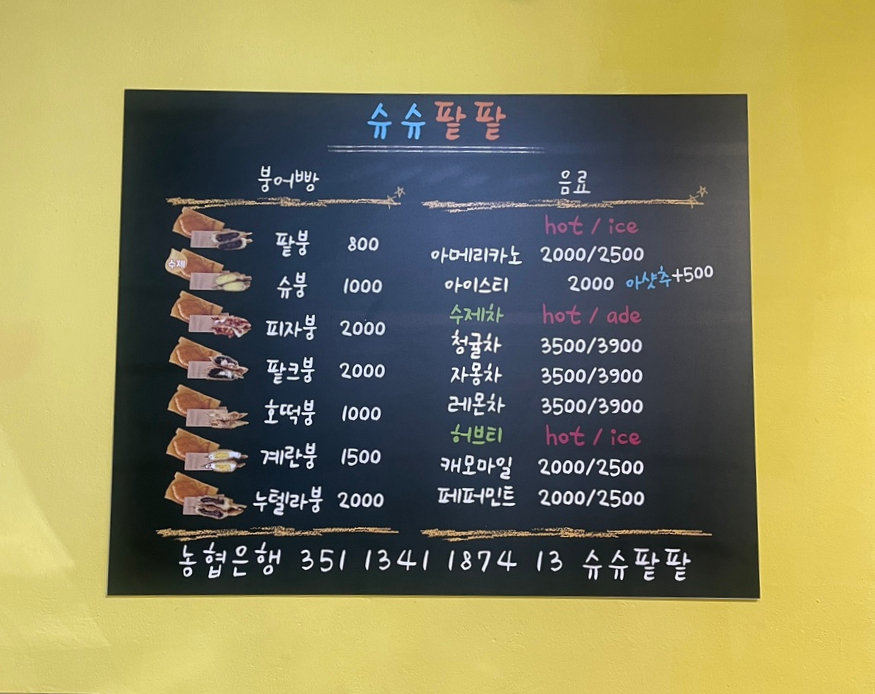 슈슈팥팥
붕어빵
팥붕 800
수제
슈붕 1000
피자붕 2000
팥크붕 2000
호떡붕 1000
계란붕 1500
누텔라붕 2000
음료
hot / ice
아메리카노 2000/2500
아이스티 2000 아샷추+500
수제차 hot / ade
청귤차 3500/3900
자몽차 3500/3900
레몬차 3500/3900
허브티 hot / ice
캐모마일 2000/2500
페퍼민트 2000/2500
농협은행 351 1341 1874 13 슈슈팥팥